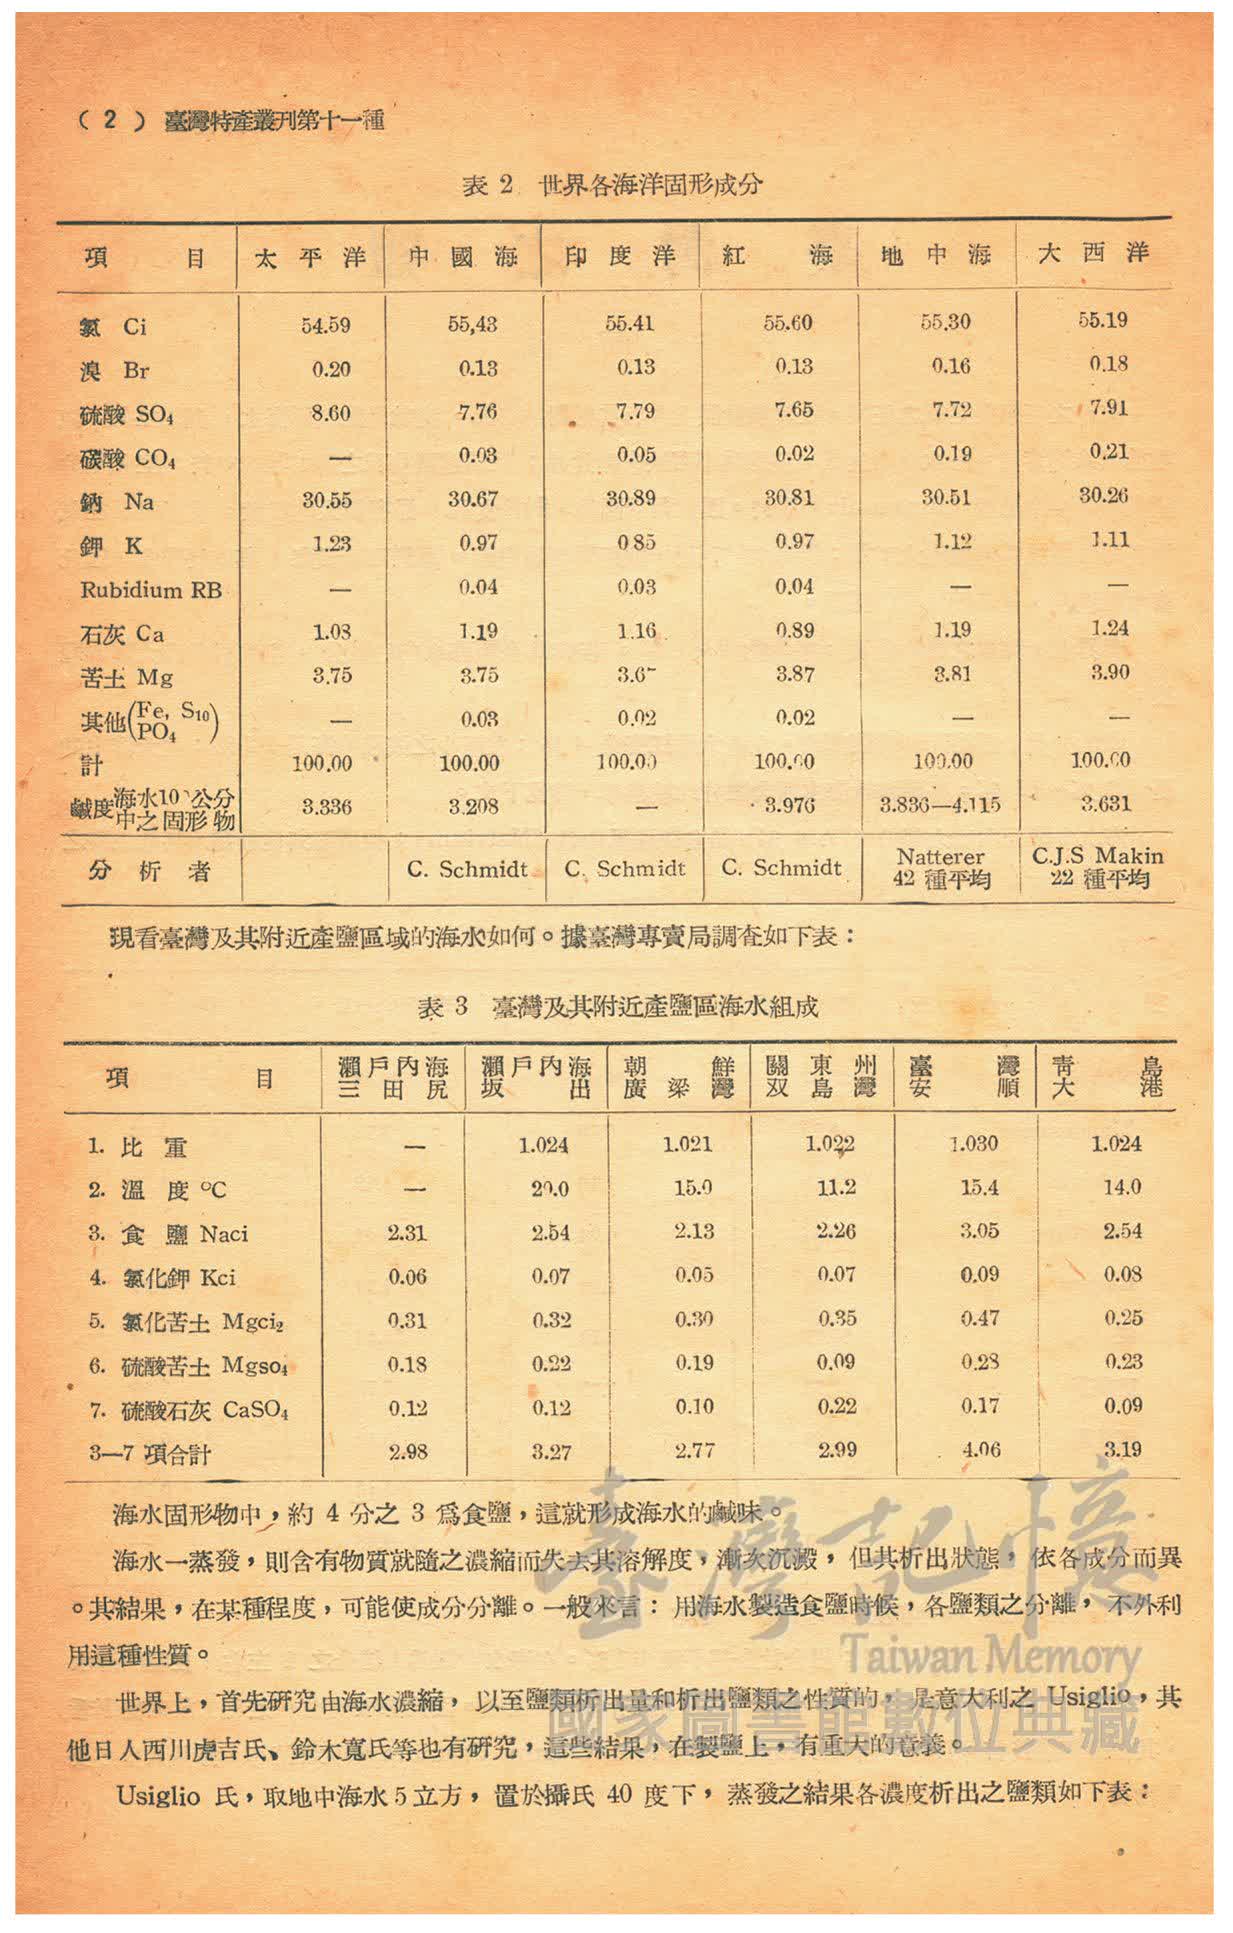 ( 2 ) 臺灣特產叢刊第十一種
表 2 世界各海洋固形成分
項 目 太 平 洋 中 國 海 印 度 洋 紅 海 地 中 海 大 西 洋
氯 Ci 54.59 55,43 55.41 55.60 55.30 55.19
溴 Br 0.20 0.13 0.13 0.13 0.16 0.18
硫酸 SO₄ 8.60 7.76 7.79 7.65 7.72 7.91
碳酸 CO₄ — 0.03 0.05 0.02 0.19 0.21
鈉 Na 30.55 30.67 30.89 30.81 30.51 30.26
鉀 K 1.23 0.97 0 85 0.97 1.12 1.11
Rubidium RB — 0.04 0.03 0.04 — —
石灰 Ca 1.08 1.19 1.16 0.89 1.19 1.24
苦土 Mg 3.75 3.75 3.6 3.87 3.81 3.90
其他(Fe, S₁₀ PO₄) — 0.03 0.02 0.02 — —
計 100.00 100.00 100.00 100.00 100.00 100.00
鹹度海水100公分中之固形物 3.336 3.208 — 3.976 3.836—4.115 3.631
分 析 者 C. Schmidt C. Schmidt C. Schmidt Natterer 42 種平均 C.J.S Makin 22 種平均
現看臺灣及其附近產鹽區域的海水如何。據臺灣專賣局調查如下表：
表 3 臺灣及其附近產鹽區海水組成
項 目 瀨戶內海三田尻 瀨戶內海坂出 朝鮮廣梁灣 關東州双島灣 臺灣安順 青島大港
1. 比 重 — 1.024 1.021 1.022 1.030 1.024
2. 溫 度 °C — 20.0 15.0 11.2 15.4 14.0
3. 食 鹽 Naci 2.31 2.54 2.13 2.26 3.05 2.54
4. 氯化鉀 Kci 0.06 0.07 0.05 0.07 0.09 0.08
5. 氯化苦土 Mgci₂ 0.31 0.32 0.30 0.35 0.47 0.25
6. 硫酸苦土 Mgso₄ 0.18 0.22 0.19 0.09 0.28 0.23
7. 硫酸石灰 CaSO₄ 0.12 0.12 0.10 0.22 0.17 0.09
3—7 項合計 2.98 3.27 2.77 2.99 4.06 3.19
海水固形物中，約 4 分之 3 爲食鹽，這就形成海水的鹹味。
海水一蒸發，則含有物質就隨之濃縮而失去其溶解度，漸次沉澱，但其析出狀態，依各成分而異
。其結果，在某種程度，可能使成分分離。一般來言：用海水製造食鹽時候，各鹽類之分離，不外利
用這種性質。
世界上，首先研究由海水濃縮，以至鹽類析出量和析出鹽類之性質的，是意大利之 Usiglio，其
他日人西川虎吉氏、鈴木寬氏等也有研究，這些結果，在製鹽上，有重大的意義。
Usiglio 氏，取地中海水 5 立方，置於攝氏 40 度下，蒸發之結果各濃度析出之鹽類如下表：
臺灣記憶
Taiwan Memory
國家圖書館數位典藏